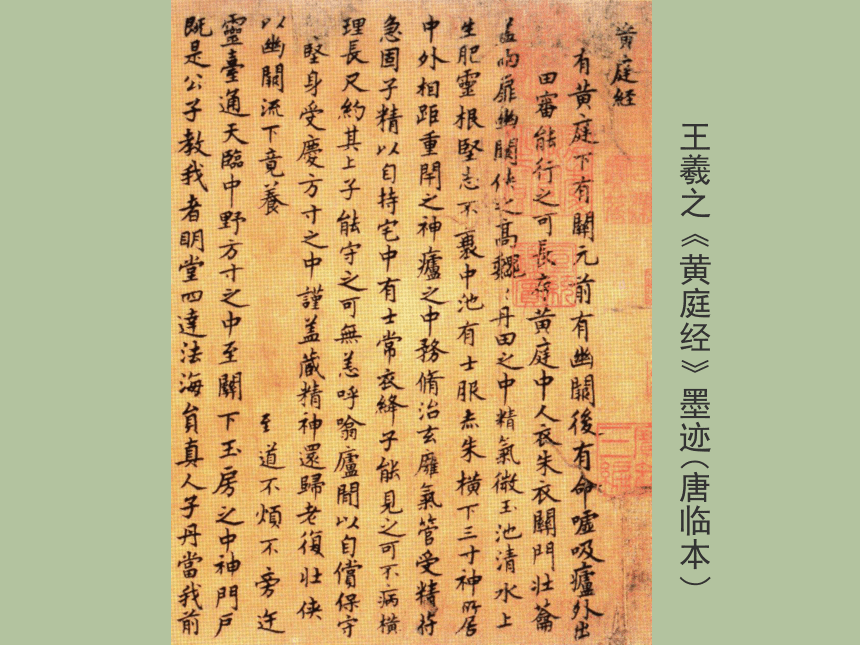 王羲之《黄庭经》墨迹(唐临本)
黄庭经
有黄庭下有關元前有幽闕後有命嘘吸廬外出
田審能行之可長存黄庭中人衣朱衣關門壯籥
盖兩扉幽闕侠之高巍:丹田之中精氣微玉池清水上
生肥靈根堅志不衰中池有士服赤朱横下三寸神所居
中外相距重閇之神廬之中務脩治玄廱氣管受精苻
急固子精以自持宅中有士常衣絳子能見之可不病横
理長尺約其上子能守之可無恙呼噏廬閒以自償保守
堅身受慶方寸之中謹盖藏精神還歸老復壯侠
以幽闕流下竟養 至道不煩不旁迕
靈臺通天臨中野方寸之中至關下玉房之中神門户
既是公子教我者明堂四達法海員真人子丹當我前